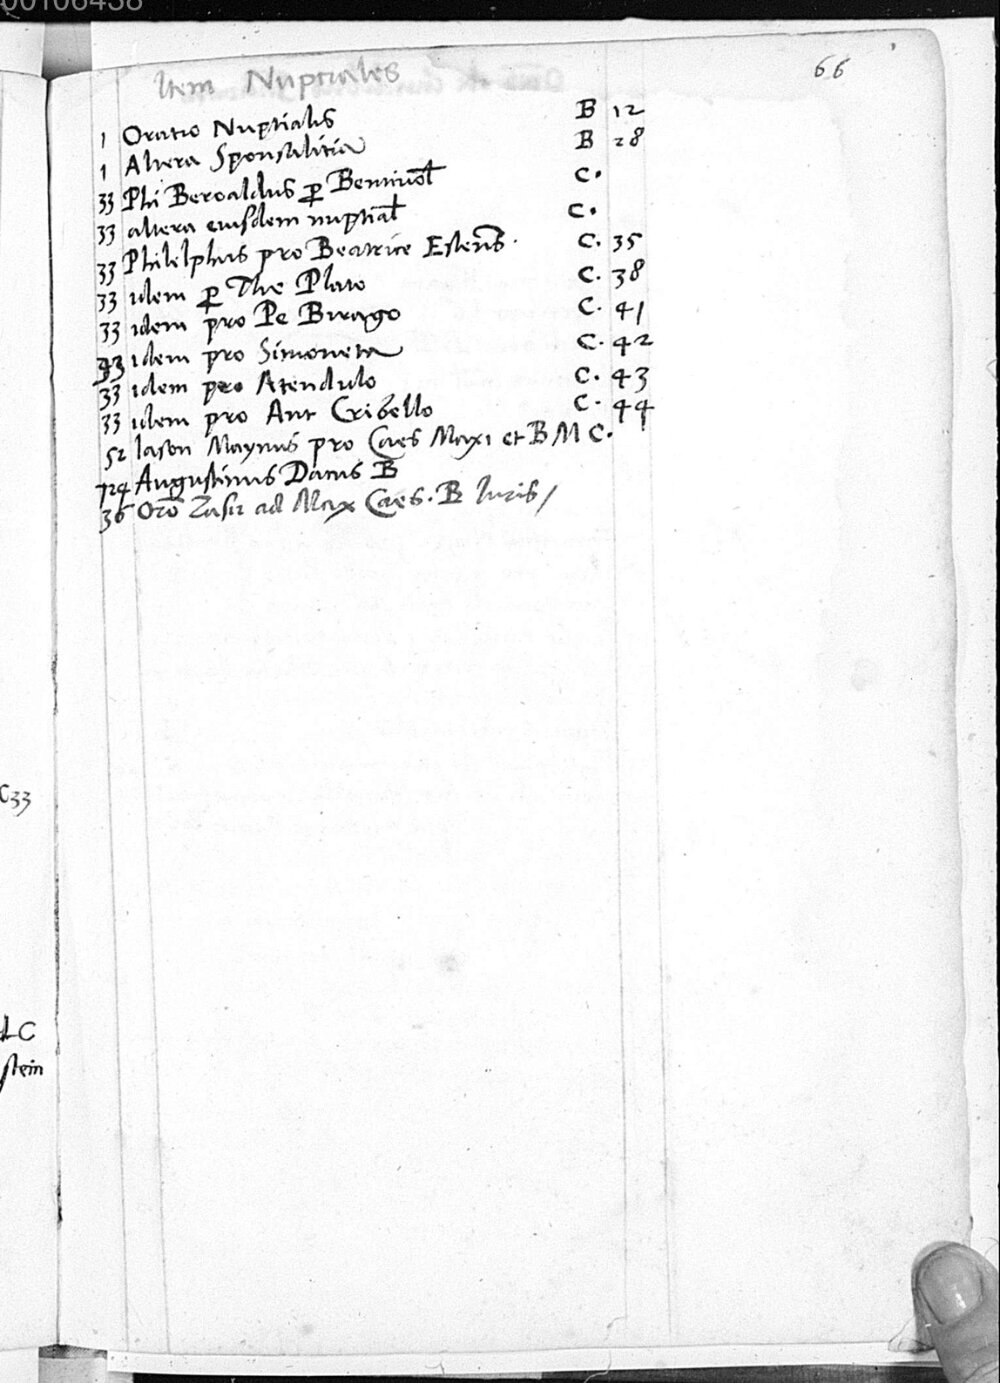 00106438
66
Item Nuptiales
1 Oratio Nuptialis B 12
1 Altera Sponsalitia B 28
33 Phi Beroaldus ꝑ Bentiuol C.
33 altera eiusdem nuptial C.
33 Philelphus pro Beatrice Estens. C. 35
33 idem ꝑ The Plato C. 38
33 idem pro Pe Birago C. 41
33 idem pro Simoneta C. 42
33 idem pro Atendulo C. 43
33 idem pro Ant Cribello C. 44
52 Iason Maynus pro Caes Maxi et B M C.
724 Augustinus Datus B
36 Oro Zasii ad Max Caes. B Iuris/
C33
C
stein